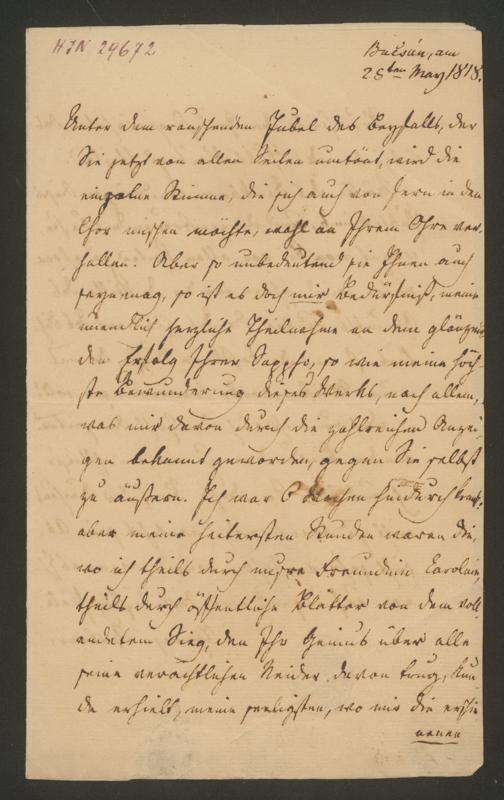 HIN 29672
Bucsán, am
28ten May 1818.
Unter dem rauschenden Jubel des Beyfalls, der
Sie jetzt von allen Seiten umtönt, wird die
einzelne Stimme, die sich auch von fern in den
Chor mischen möchte, wohl an Ihrem Ohre ver-
hallen. Aber so unbedeutend sie Ihnen auch
seyn mag, so ist es doch mir Bedürfniß, meine
unendlich herzliche Theilnahme an dem glänzen-
den Erfolg Ihrer Sappho, so wie meine höch-
ste Bewunderung dieses Werks, nach allem,
was mir davon durch die zahlreichen Anzei-
gen bekannt geworden, gegen Sie selbst
zu äußern. Ich war 6 Wochen hindurch krank,
aber meine heitersten Stunden waren die,
wo ich theils durch unsre Freundinn Caroline,
theils durch öffentliche Blätter von dem voll-
endetem Sieg, den Ihr Genius über alle
seine verächtlichen Neider davon trug, Kun-
de erhielt, meine seeligsten, wo mir die erschie-
nenen